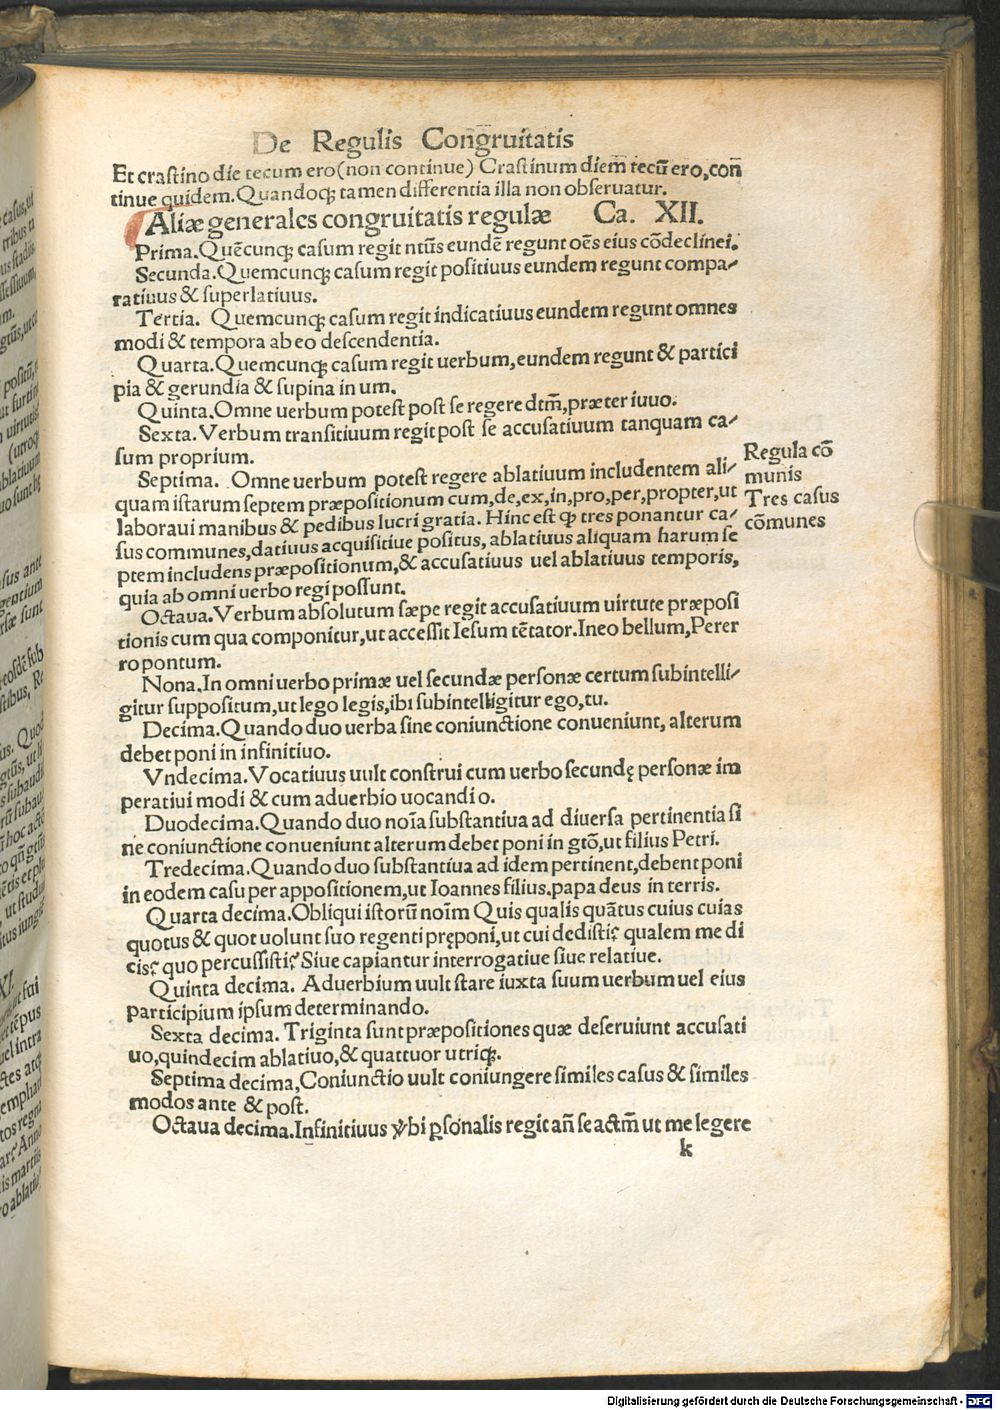 De Regulis Congruitatis
Et crastino die tecum ero (non continue) Crastinum diem̄ tecū ero, con̄
tinue quidem. Quandoqꝫ tamen differentia illa non obseruatur.
Aliæ generales congruitatis regulæ Ca. XII.
Prima. Quēcunqꝫ casum regit ntūs eundē regunt oēs eius cōdeclinei.
Secunda. Quemcunqꝫ casum regit positiuus eundem regunt compa-
ratiuus & superlatiuus.
Tertia. Quemcunqꝫ casum regit indicatiuus eundem regunt omnes
modi & tempora ab eo descendentia.
Quarta. Quemcunqꝫ casum regit uerbum, eundem regunt & partici
pia & gerundia & supina in um.
Quinta. Omne uerbum potest post se regere dtm̄, præter iuuo.
Sexta. Verbum transitiuum regit post se accusatiuum tanquam ca-
sum proprium.
Septima. Omne uerbum potest regere ablatiuum includentem ali-
quam istarum septem præpositionum cum, de, ex, in, pro, per, propter, ut
laboraui manibus & pedibus lucri gratia. Hinc est ꝙ tres ponantur ca-
sus communes, datiuus acquisitiue positus, ablatiuus aliquam harum se
ptem includens præpositionum, & accusatiuus uel ablatiuus temporis,
quia ab omni uerbo regi possunt.
Octaua. Verbum absolutum sæpe regit accusatiuum uirtute præposi
tionis cum qua componitur, ut accessit Iesum tētator. Ineo bellum, Perer
ro pontum.
Nona. In omni uerbo primæ uel secundæ personæ certum subintelli-
gitur suppositum, ut lego legis, ibi subintelligitur ego, tu.
Decima. Quando duo uerba sine coniunctione conueniunt, alterum
debet poni in infinitiuo.
Vndecima. Vocatiuus uult construi cum uerbo secundę personæ im
peratiui modi & cum aduerbio uocandi o.
Duodecima. Quando duo noīa substantiua ad diuersa pertinentia si
ne coniunctione conueniunt alterum debet poni in gtō, ut filius Petri.
Tredecima. Quando duo substantiua ad idem pertinent, debent poni
in eodem casu per appositionem, ut Ioannes filius. papa deus in terris.
Quarta decima. Obliqui istorū noīm Quis qualis quātus cuius cuias
quotus & quot uolunt suo regenti pręponi, ut cui dedisti? qualem me di
cis? quo percussisti? Siue capiantur interrogatiue siue relatiue.
Quinta decima. Aduerbium uult stare iuxta suum uerbum uel eius
participium ipsum determinando.
Sexta decima. Triginta sunt præpositiones quæ deseruiunt accusati
uo, quindecim ablatiuo, & quattuor utriqꝫ.
Septima decima, Coniunctio uult coniungere similes casus & similes
modos ante & post.
Octaua decima. Infinitiuus v̓bi ꝑsonalis regit an̄ se actm̄ ut me legere
k
Regula cō
munis
Tres casus
cōmunes
Digitalisierung gefördert durch die Deutsche Forschungsgemeinschaft - DFG